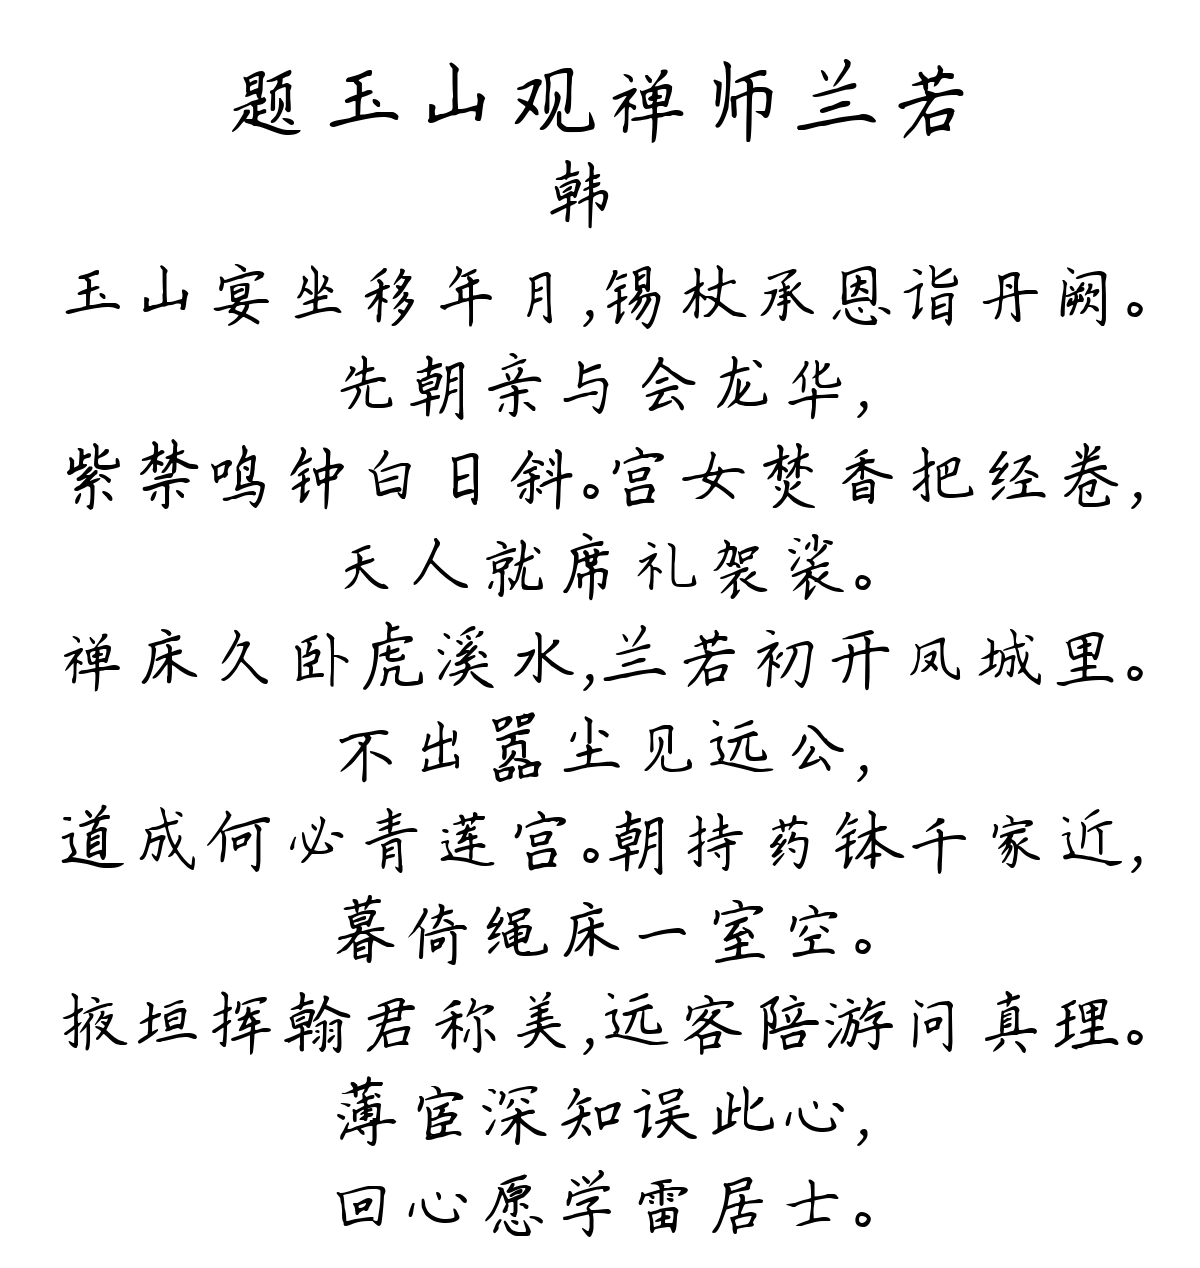 题玉山观禅师兰若
韩
玉山宴坐移年月,锡杖承恩诣丹阙。
先朝亲与会龙华,
紫禁鸣钟白日斜。宫女焚香把经卷,
天人就席礼袈裟。
禅床久卧虎溪水,兰若初开凤城里。
不出嚣尘见远公,
道成何必青莲宫。朝持药钵千家近,
暮倚绳床一室空。
掖垣挥翰君称美,远客陪游问真理。
薄宦深知误此心,
回心愿学雷居士。